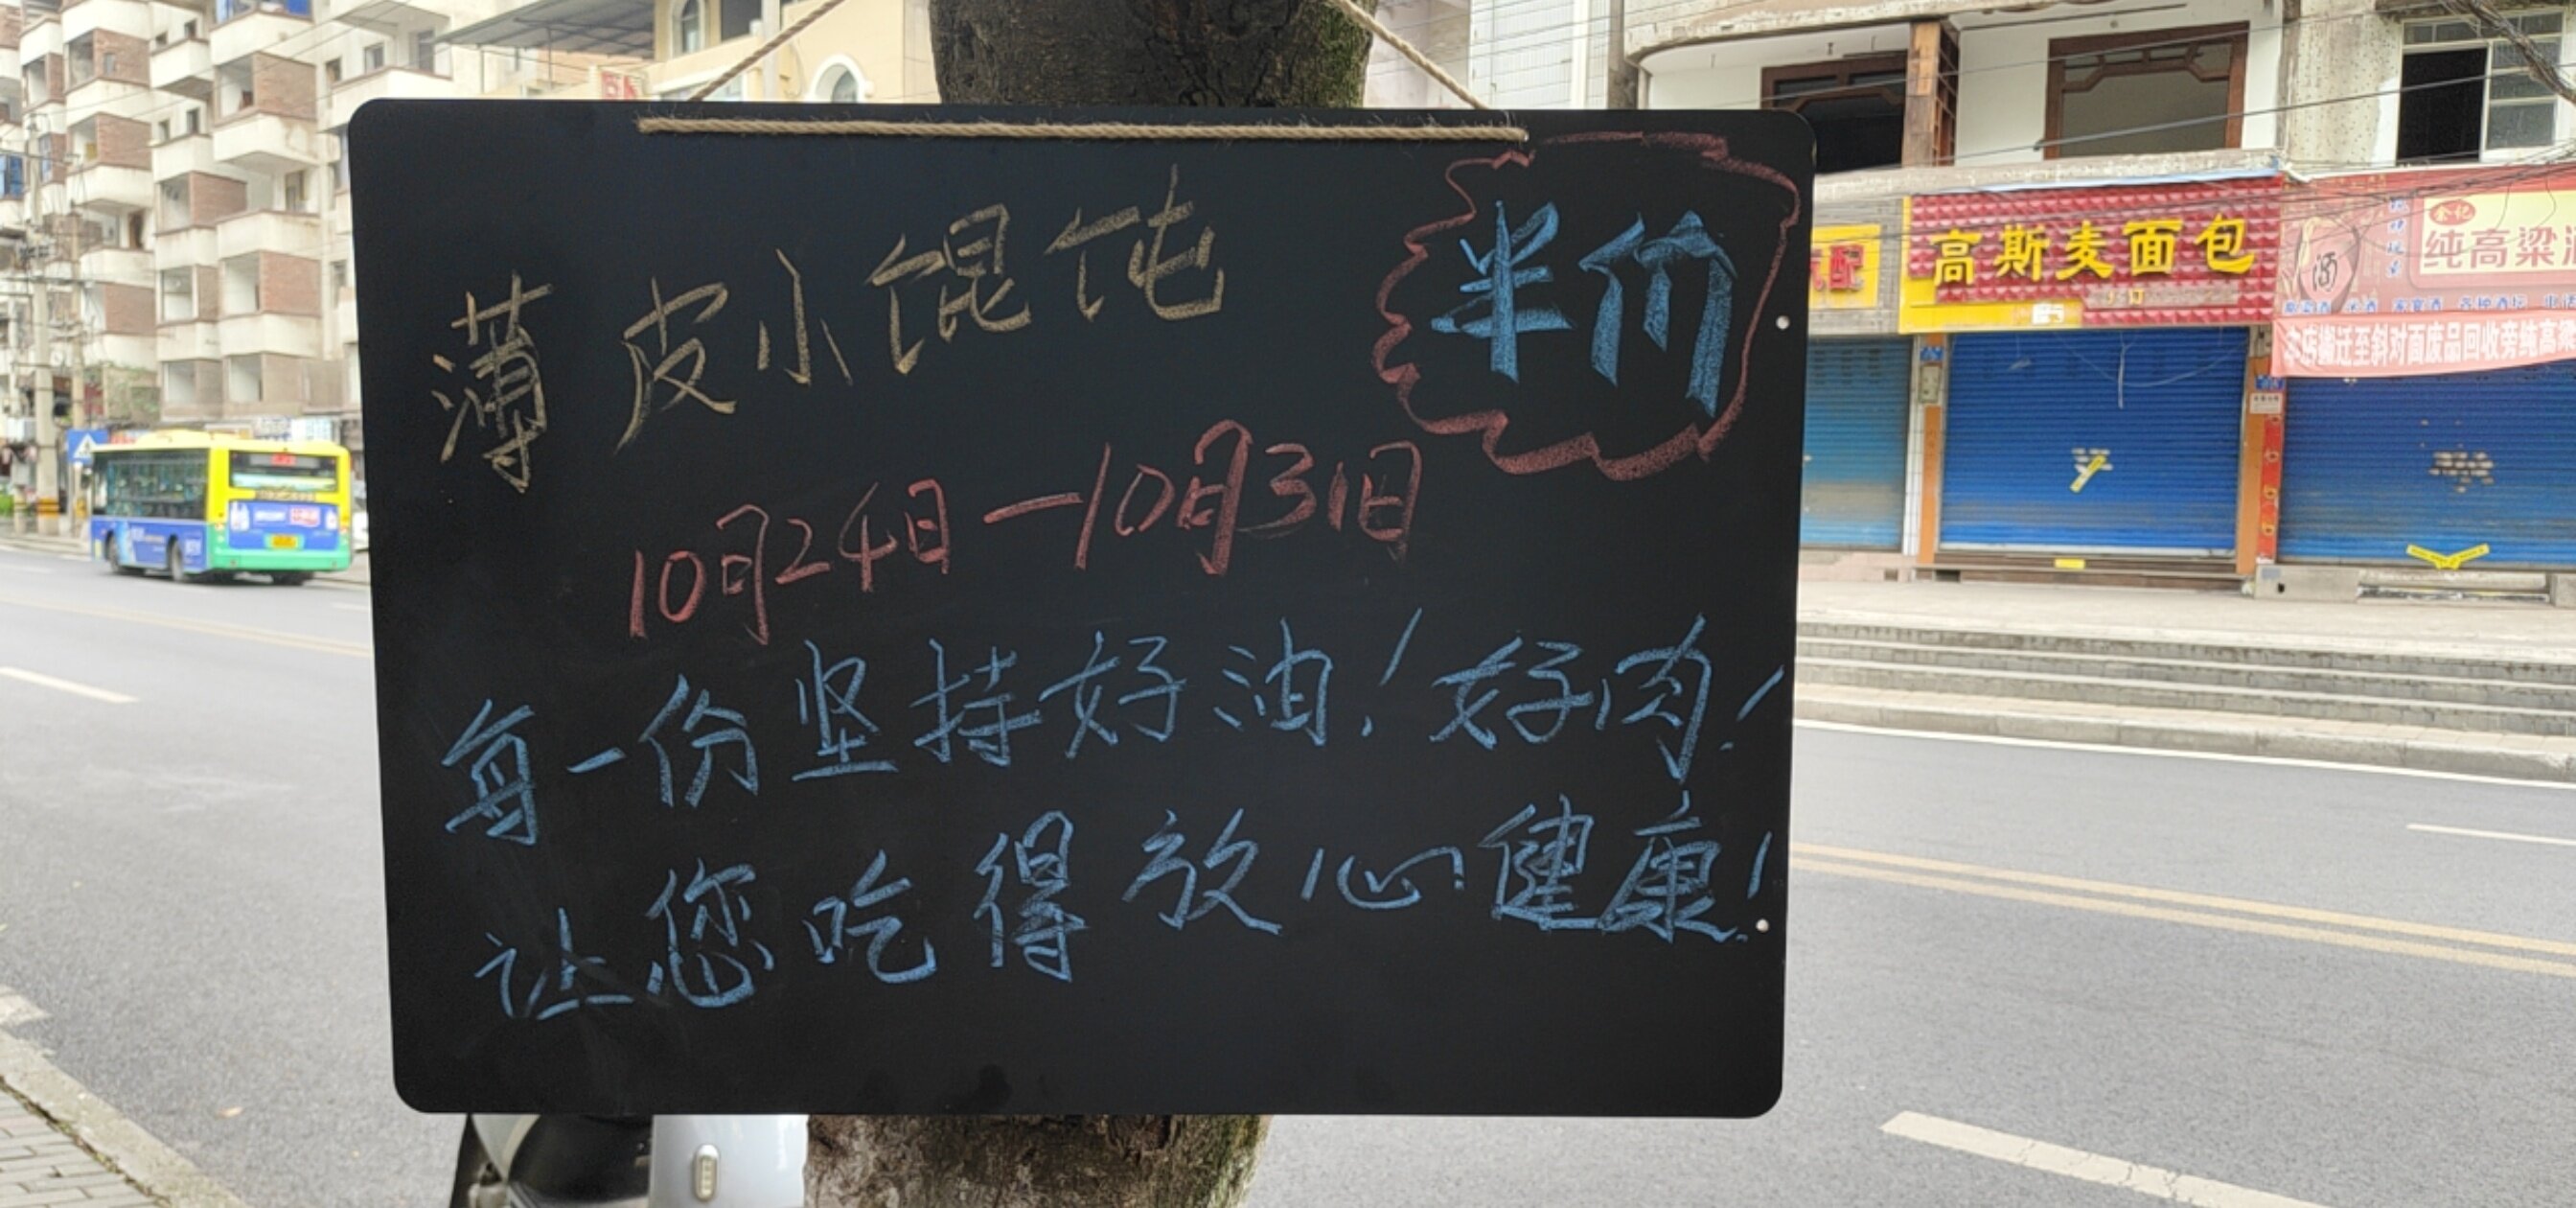 薄皮小馄饨
半价
10月24日一10月31日
每一份坚持好油！好肉！
让您吃得放心健康！
配
高斯麦面包
金记
纯高粱酒
酒
本店搬迁至斜对面废品回收旁纯高粱